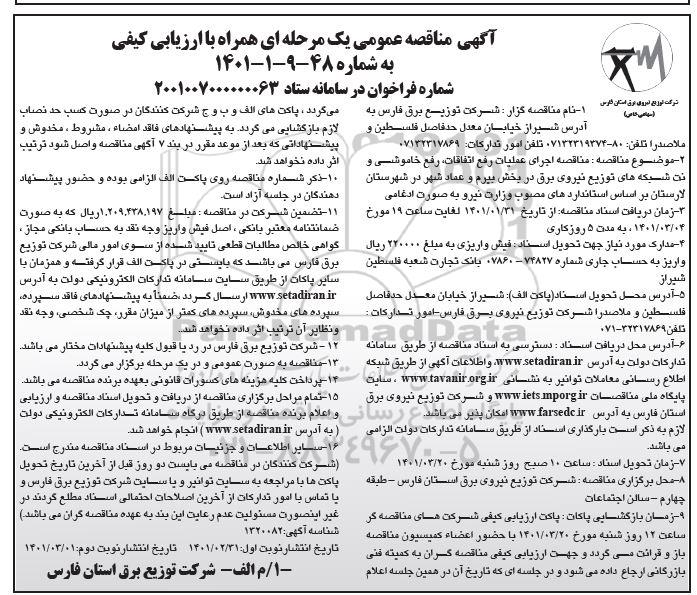 آگهی مناقصه عمومی یک مرحله ای همراه با ارزیابی کیفی
به شماره ۴۸-۹-۱-۱۴۰۱
شماره فراخوان در سامانه ستاد ۲۰۰۱۰۰۷۰۰۰۰۰۰۰۶۳
شرکت توزیع نیروی برق استان فارس
(سهامی خاص)
۱-نام مناقصه گزار : شرکت توزیع برق فارس به
آدرس شیراز خیابان معدل حدفاصل فلسطین و
ملاصدرا تلفن: ۸۰-۰۷۱۳۲۳۱۹۳۷۴ تلفن امور تدارکات: ۰۷۱۳۲۳۱۷۸۶۹
۲-موضوع مناقصه : مناقصه اجرای عملیات رفع اتفاقات، رفع خاموشی و
نت شبکه های توزیع نیروی برق در بخش بیرم و عماد شهر در شهرستان
لارستان بر اساس استاندارد های مصوب وزارت نیرو به صورت ادغامی
۳-زمان دریافت اسناد مناقصه: از تاریخ ۱۴۰۱/۰۱/۳۱ لغایت ساعت ۱۹ مورخ
۱۴۰۱/۰۳/۰۴ ، به مدت ۵ روزکاری
۴-مدارک مورد نیاز جهت تحویل اسناد : فیش واریزی به مبلغ ۲۲۰۰۰۰ ریال
واریز به حساب جاری شماره ۷۴۸۲۷ - ۰۷۸۶۰ بانک تجارت شعبه فلسطین
شیراز
۵-آدرس محل تحویل اسناد(پاکت الف): شیراز خیابان معدل حدفاصل
فلسطین و ملاصدرا شرکت توزیع نیروی برق فارس-امور تدارکات :
تلفن ۰۷۱-۳۲۳۱۷۸۶۹
۶-آدرس محل دریافت اسناد : دسترسی به اسناد مناقصه از طریق سامانه
تدارکات دولت به آدرس www.setadiran.ir، واطلاعات آگهی از طریق شبکه
اطلاع رسانی معاملات توانیر به نشانی www.tavanir.org.ir ، سایت
پایگاه ملی مناقصات www.iets.mporg.ir و شرکت توزیع نیروی برق
استان فارس به آدرس www.farsedc.ir امکان پذیر می باشد.
لازم به ذکر است بارگذاری اسناد از طریق سامانه تدارکات دولت الزامی
می باشد.
۷-زمان تحویل اسناد : ساعت ۱۰ صبح روز شنبه مورخ ۱۴۰۱/۰۳/۲۰
۸-محل برگزاری مناقصه : شرکت توزیع نیروی برق استان فارس - طبقه
چهارم - سالن اجتماعات
۹-زمان بازگشایی پاکات : پاکت ارزیابی کیفی شرکت های مناقصه گر
ساعت ۱۲ روز شنبه مورخ ۱۴۰۱/۰۳/۲۰ با حضور اعضاء کمیسیون مناقصه
باز و قرائت می گردد و جهت ارزیابی کیفی مناقصه گران به کمیته فنی
بازرگانی ارجاع داده می شود و در جلسه ای که تاریخ آن در همین جلسه اعلام
می‌گردد ، پاکت های الف و ب و ج شرکت کنندگان در صورت کسب حد نصاب
لازم بازگشایی می گردد. به پیشنهادهای فاقد امضاء ، مشروط ، مخدوش و
پیشنهاداتی که بعد از موعد مقرر در بند ۷ آگهی مناقصه واصل شود ترتیب
اثر داده نخواهد شد.
۱۰-ذکر شماره مناقصه روی پاکت الف الزامی بوده و حضور پیشنهاد
دهندگان در جلسه آزاد است.
۱۱-تضمین شرکت در مناقصه : مبلغ ۱,۲۰۹,۴۳۸,۱۹۷ریال که به صورت
ضمانتنامه معتبر بانکی ، اصل فیش واریز وجه نقد به حساب بانکی مجاز ،
گواهی خالص مطالبات قطعی تایید شده از سوی امور مالی شرکت توزیع
برق فارس می باشد که بایستی در پاکت الف قرار گرفته و همزمان با
سایر پاکات از طریق سایت سامانه تدارکات الکترونیکی دولت به آدرس
www.setadiran.ir ارسال گردد .ضمناً به پیشنهادهای فاقد سپرده،
سپرده های مخدوش، سپرده های کمتر از میزان مقرر، چک شخصی، وجه نقد
ونظایر آن ترتیب اثر داده نخواهد شد.
۱۲ - شرکت توزیع برق فارس در رد یا قبول کلیه پیشنهادات مختار می باشد.
۱۳-مناقصه به صورت عمومی و در یک مرحله برگزار می گردد.
۱۴-پرداخت کلیه هزینه های کسورات قانونی بعهده برنده مناقصه می باشد.
۱۵-تمام مراحل برگزاری مناقصه از دریافت و تحویل اسناد مناقصه و ارزیابی
و اعلام برنده مناقصه از طریق درگاه سامانه تدارکات الکترونیکی دولت
( به آدرس www.setadiran.ir ) انجام خواهد شد.
۱۶-سایر اطلاعات و جزئیات مربوط در اسناد مناقصه مندرج است.
(شرکت کنندگان در مناقصه می بایست دو روز قبل از آخرین تاریخ تحویل
پاکت ها با مراجعه به سایت توانیر و یا سایت شرکت توزیع برق فارس و
یا تماس با امور تدارکات از آخرین اصلاحات احتمالی اسناد مطلع گردند در
غیر اینصورت مسئولیت عدم رعایت این بند به عهده مناقصه گران می باشد.)
شناسه آگهی:۱۳۲۰۰۸۲
تاریخ انتشارنوبت اول: ۱۴۰۱/۰۲/۳۱ تاریخ انتشارنوبت دوم:۱۴۰۱/۰۳/۰۱
-۱/م الف- شرکت توزیع برق استان فارس
۰۲۱-۸۸۳۴۹۶۷۰-۵